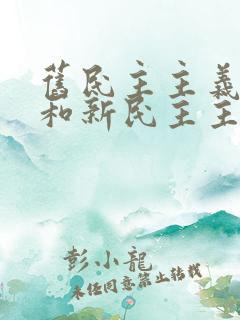 舊民主主義
和新民主主
彭小龍
未任同意禁止轉載